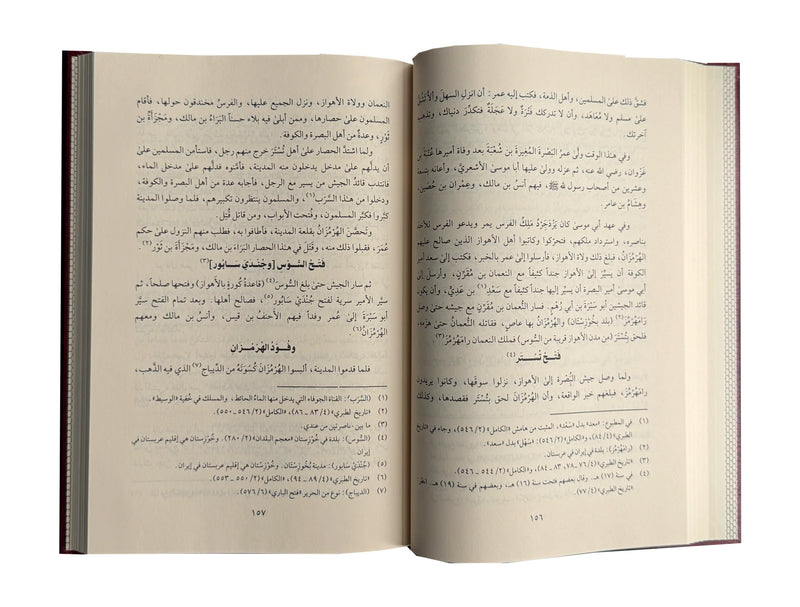 فشقَّ ذلك على المسلمين، وأهل الذمة، فكتب إليه عمر: أن انزلِ السهلَ وألَّا تشُقَّ
على مسلم ولا مُعاهَد، وأن لا تدركك فَترةٌ ولا عَجلةٌ فتكدَّرَ دنياك، وتذهب
آخرتك.
وفي هذا الوقت ولَّى عمرُ البَصْرةَ المُغيرةَ بن شُعْبَةَ بعد وفاة أميرها عُتبة بن
غَزْوان، رضي الله عنه، ثم عزله وولى أبا موسى الأشعريَّ، وأعانه بتسعة
وعشرين من أصحاب رسول الله ﷺ، فيهم أنسُ بن مالك، وعِمران بن حُصَين،
وهِشامُ بن عامر.
وفي عهد أبي موسى كان يَزْدَجِرْدُ مَلِكُ الفرس يمر ويدعو الفرس للأخذ
بناصره، واسترداد ملكهم، فتحرّكوا وكاتبوا أهل الأهواز الذين صالح عليهم
الهُرْمُزَانُ، فبلغ ذلك عمال ولاة الأهواز، فأرسلوا إلى عمر بالخبر، فكتب إلى سعد في
الكوفة أن يسيِّرَ إلى الأهواز جنداً كثيفاً مع النعمان بن مُقَرِّن، وأرسل إلى
أبي موسى أمير البصرة أن يسيِّر إليها جنداً كثيفاً مع سَعْدِ(١) بن عَدِيٍّ، وأن يكون
قائد الجيشين أبو سَبْرَة بن أبي رُهْمٍ. فسار النُّعمانُ بن مُقَرِّن مع جيشه حتى وصل
رَامَهُرْمُزَ(٢) (بلد بخُوزِسْتان) والهُرْمُزَانُ بها عاصٍ، فقاتله النُّعمانُ حتى هزمه،
فلحق بتُسْتَرَ (من مدن الأهواز قريبة من السُّوس) فملك النعمان رَامَهُرْمُزَ(٣).
فَتحُ تُسْتَر (٤)
ولما وصل جيش البَصْرة إلى الأهواز، نزلوا سوقَها، وكانوا يريدون
رَامَهُرْمُزَ، فبلغهم خبر الواقعة، وأن الهُرْمُزَانَ لحق بتُسْتَر فقصدها، وكذلك
(١) في المطبوع: «معد» بدل «سَعْد»، المثبت من هامش «الكامل» (٥٤٦/٢)، وجاء في «تاريخ
الطبري» (٨٤/٤)، و«الكامل» (٥٤٦/٢): «سَهْل» بدل «سعد».
(٢) (رَامَهُرْمُزُ): بلدة في إيران في عربستان.
(٣) «تاريخ الطبري» (٧٦/٤، ٧٨، ٨٣ ـ ٨٤)، و«الكامل» (٥٤٤/٢ ـ ٥٤٦).
(٤) في سنة (١٧) هـ. وقال بعضهم فتحت سنة (١٦) هـ، وبعضهم في سنة (١٩) هـ. انظر
«تاريخ الطبري» (٧٧/٤).
١٥٦
النعمان وولاة الأهواز، ونزل الجميع عليها، والفرسُ مخندقون حولها، فأقام
المسلمون على حصارها، وممن أبلى فيه بلاء حسناً البَرَاءُ بن مالك، ومَجْزَأَةُ بن
ثَوْرٍ، وعدةٌ من أهل البصرة والكوفة.
ولما اشتدَّ الحصار على أهل تُسْتَرَ خرج منهم رجل، فاستأمن المسلمين على
أن يدلَّهم على مدخل يدخلون منه المدينة، فأمّنوه فدلَّهم على مدخل الماء،
فانتدب قائدُ الجيش من يسير مع الرجل، فأجابه عدة من أهل البصرة والكوفة،
ودخلوا من هذا السَّرَب(١)، والمسلمون ينتظرون تكبيرهم، فلما وصلوا المدينة
كبَّروا فكبَّر المسلمون، وفتحت الأبواب، ومن قاتل قُتِل.
وتَحصَّنَ الهُرْمُزَانُ بقلعة المدينة، فأطافوا به، فطلب منهم النزول على حكم
عُمَرَ، فقبلوا ذلك منه، وقُتِلَ في هذا الحصار البَرَاءُ بن مالك، ومَجْزَأَةُ بن ثَوْر(٢).
فَتحُ السُّوس [وجُندَيْ سَابُور](٣)
ثم سار الجيش حتى بلغ السُّوسَ(٤) (قاعدةُ كُورةٍ بالأهواز) وفتحها صلحاً، ثم
سيَّر الأمير سرية لفتح جُنْدَيْ سَابُور(٥)، فصالح أهلها. وبعد تمام الفتح سيَّر
أبو سَبْرَة إلى عمر وفداً فيهم الأحنفُ بن قيس، وأنسُ بن مالك ومعهم
الهُرْمُزَانُ(٦).
وفُودُ الهُرْمُزَانِ
فلما قدموا المدينة، ألبسوا الهُرْمُزَانَ كُسْوَتَهُ من الدِّيباج(٧) الذي فيه الذَّهب،
(١) (السَّرَب): القناة الجوفاء التي يدخل منها الماءُ الحائط، والمسلك في خُفية «الوسيط».
«تاريخ الطبري» (٨٣/٤ ـ ٨٦)، «الكامل» (٥٤٦/٢ ـ ٥٥٠).
(٣) ما بين-ناصرتين من عندي.
(٤) (السُّوس): بلدة في خُوزِسْتان «معجم البلدان» (٢٨٠/٢)، وخُوزِسْتان هي إقليم عربستان في
إيران.
(٥) (جُنْدَيْ سابور): مدينة بخُوزِسْتَان. وخُوزِسْتان هي إقليم عربستان في إيران.
(٦) «تاريخ الطبري» (٨٩/٤ ـ ٩٤)، «الكامل» (٥٥٠/٢ ـ ٥٥٣).
(٧) (الديباج): نوع من الحرير «فتح الباري» (٥٧٦/٦).
١٥٧